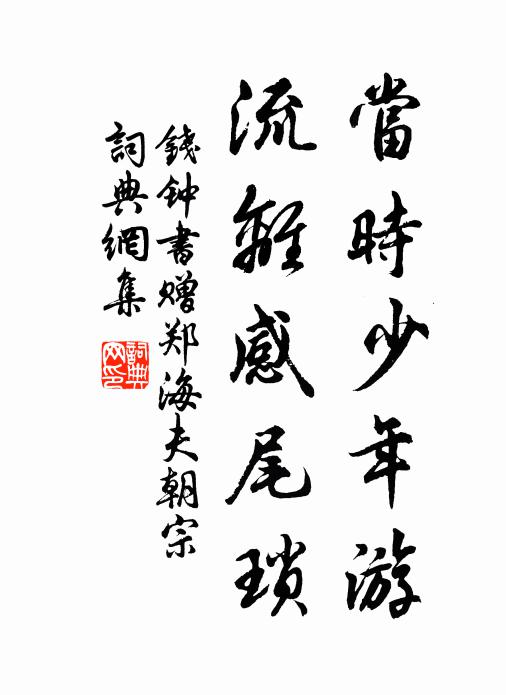 當時少年游
流離感尾瑣
錢钟書赠郑海夫朝宗
詞典網集
詞典网印